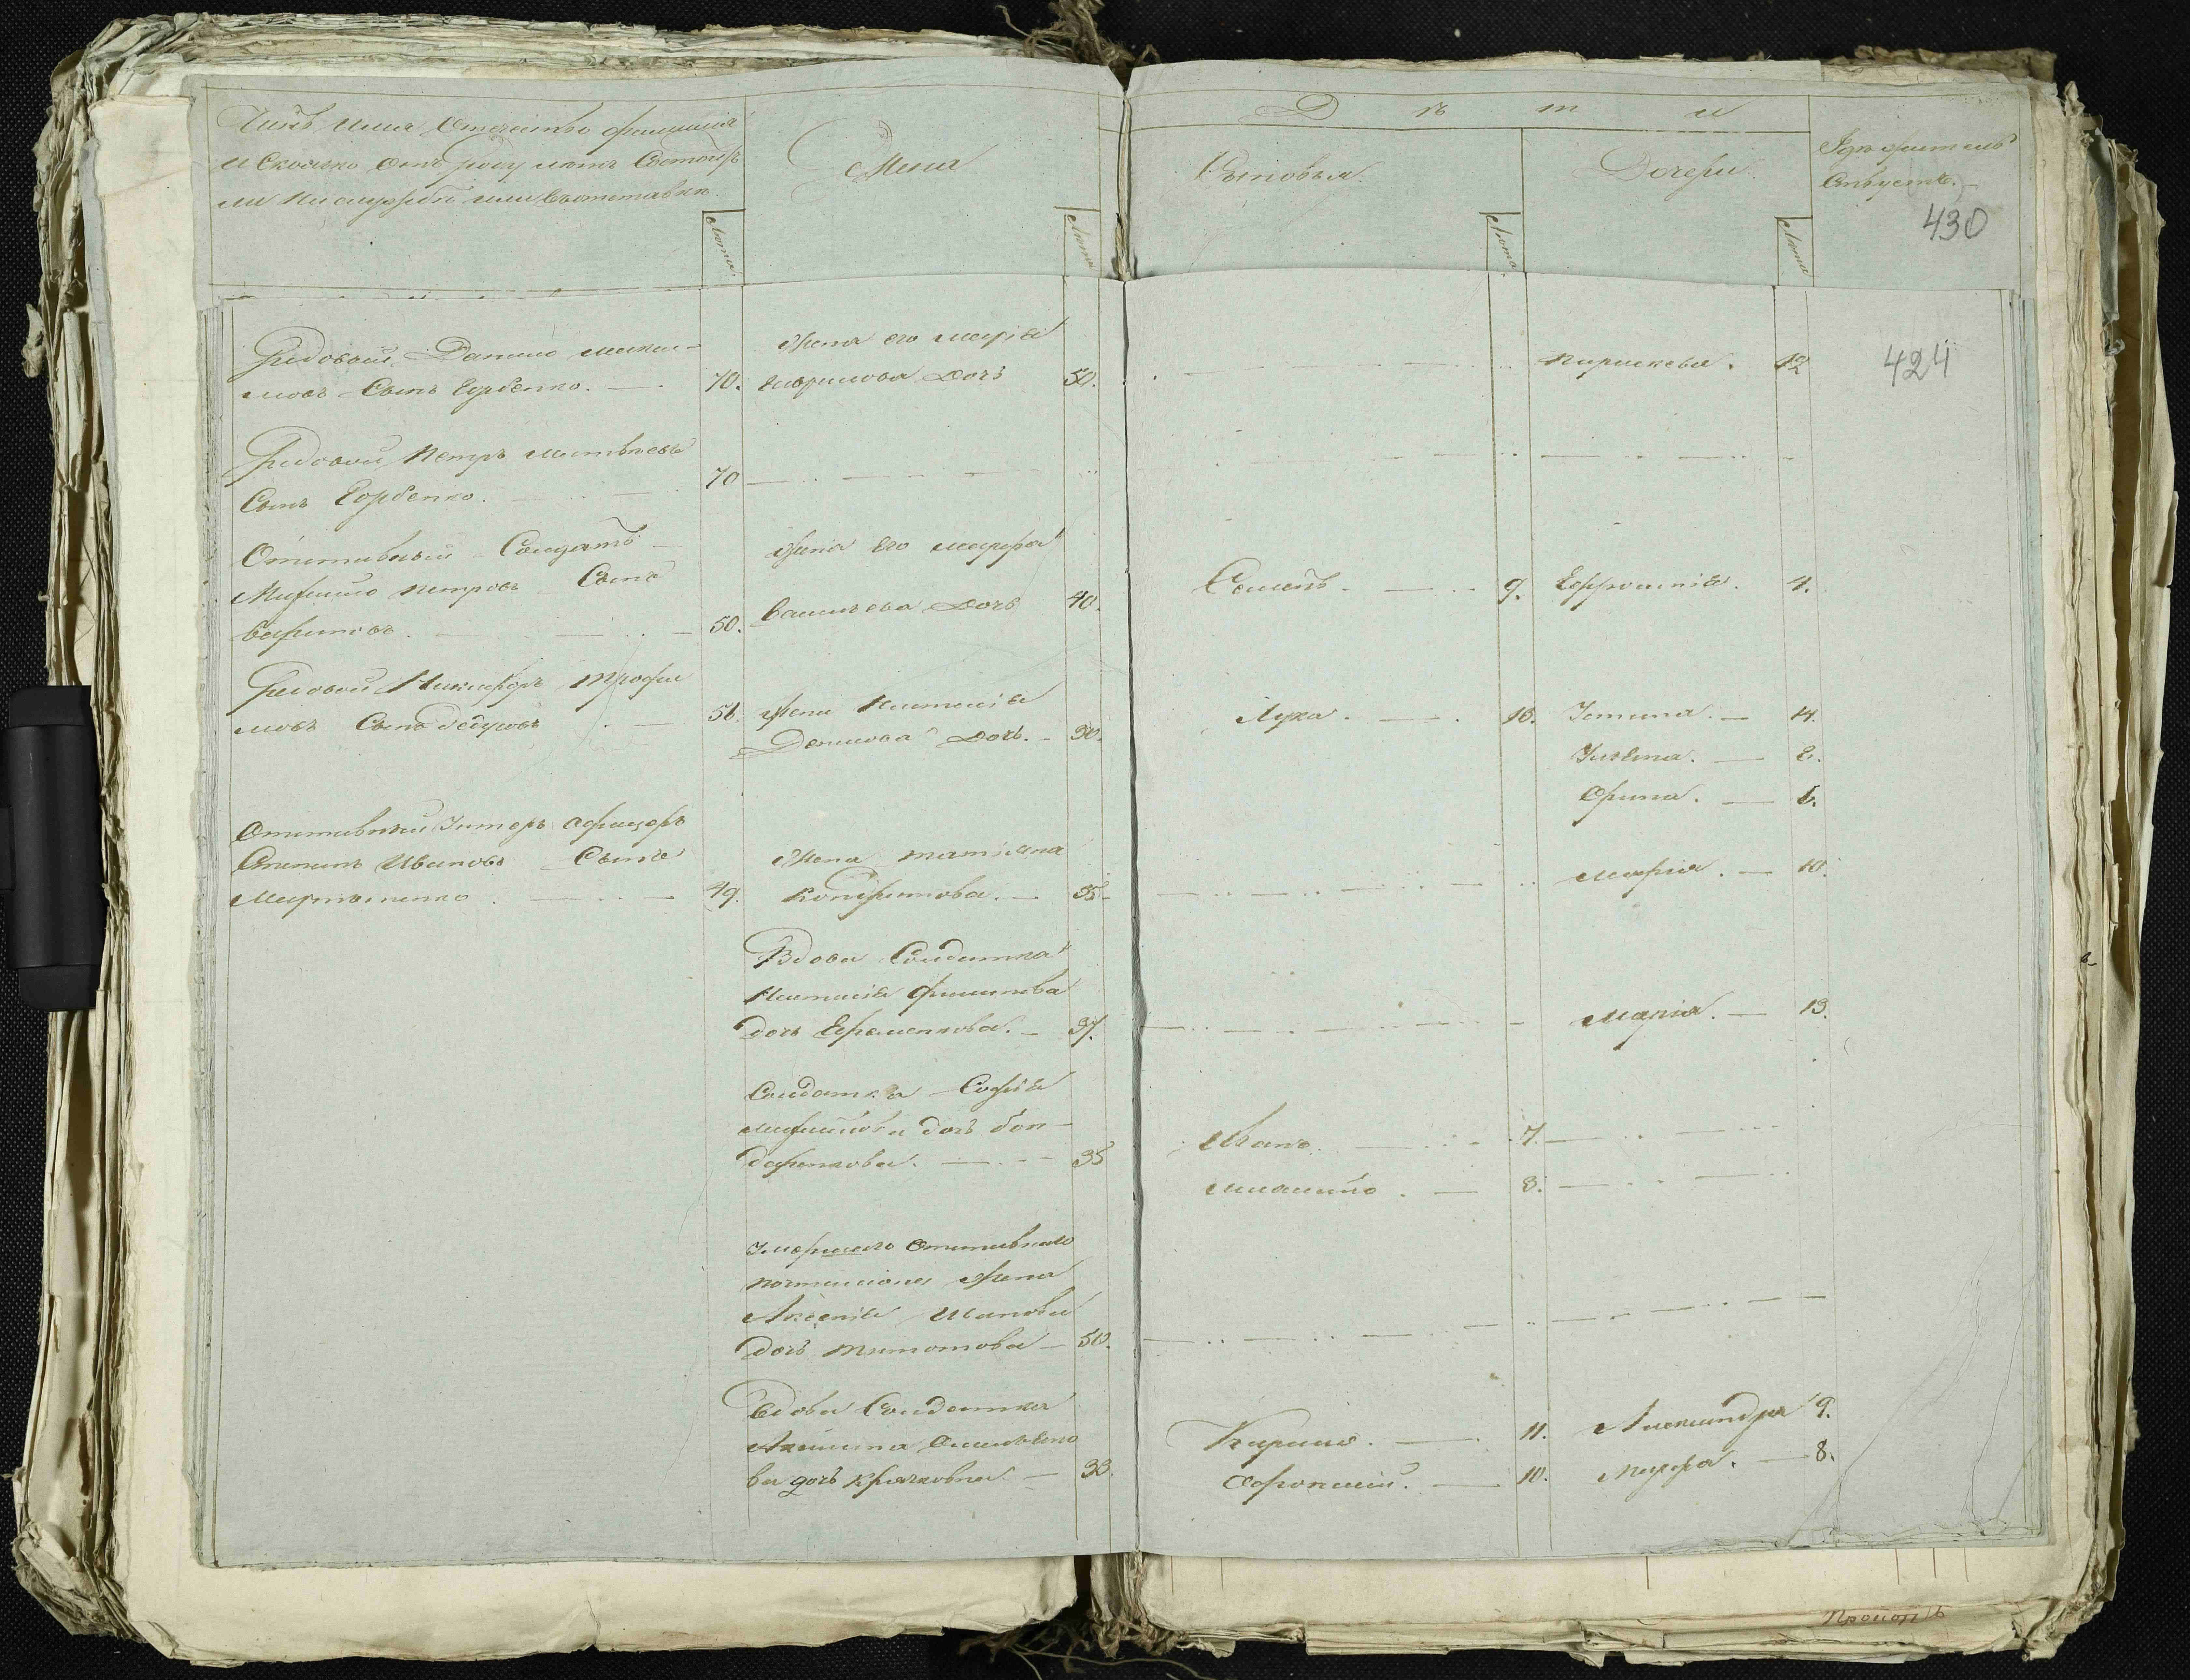 Чинъ имя Отечество фамилия
и Сколько отъ роду летъ Состоитъ
ли на службе или въ отставке
Лета
Жена
Лета
Дѣти
Сыновья
Лета
Дочери
Лета
Где жительство
430
Рядовой Данило
мовъ Сынъ Горбенко. 70.
Жена его Марія
Гаврилова Дочь 50.
Параскева. 12
424
Рядовой Петръ Матвѣевъ
Сынъ Горбенко. 70
Отставный Солдатъ
Мартино Петровъ Сынъ
50.
Жена Его Марфа
Васильева Дочь 40.
Семенъ. 9.
Ефросинія. 4.
Рядовой Никифоръ Трофи
мовъ Сынъ Дедусовъ 56.
Жена Настасія
Данилова Дочь. 30.
Лука. 16.
Устина. 14.
Ульяна.
Орина.
Отставный Унтеръ Офицеръ
Степанъ Ивановъ Сынъ
Мартыненко. 49.
Жена Татіяна
Кондратова. 35
Марія. 10.
Вдова Солдатка
Настасія Филипова
дочь Ефременкова. 37.
Марія. 13.
Солдатка Софія
Мартинова дочь Бон
даренкова. 35
Иванъ. 7.
8.
Умершего Отставнаго
почталіона Жена
Аксенія Иванова
дочь Титотова 50.
Вдова Солдатка
Акилина Омельяно
ва дочь Крячковна 33.
Герасимъ. 11.
Афонасий. 10.
Александра 9.
Марфа. 8.